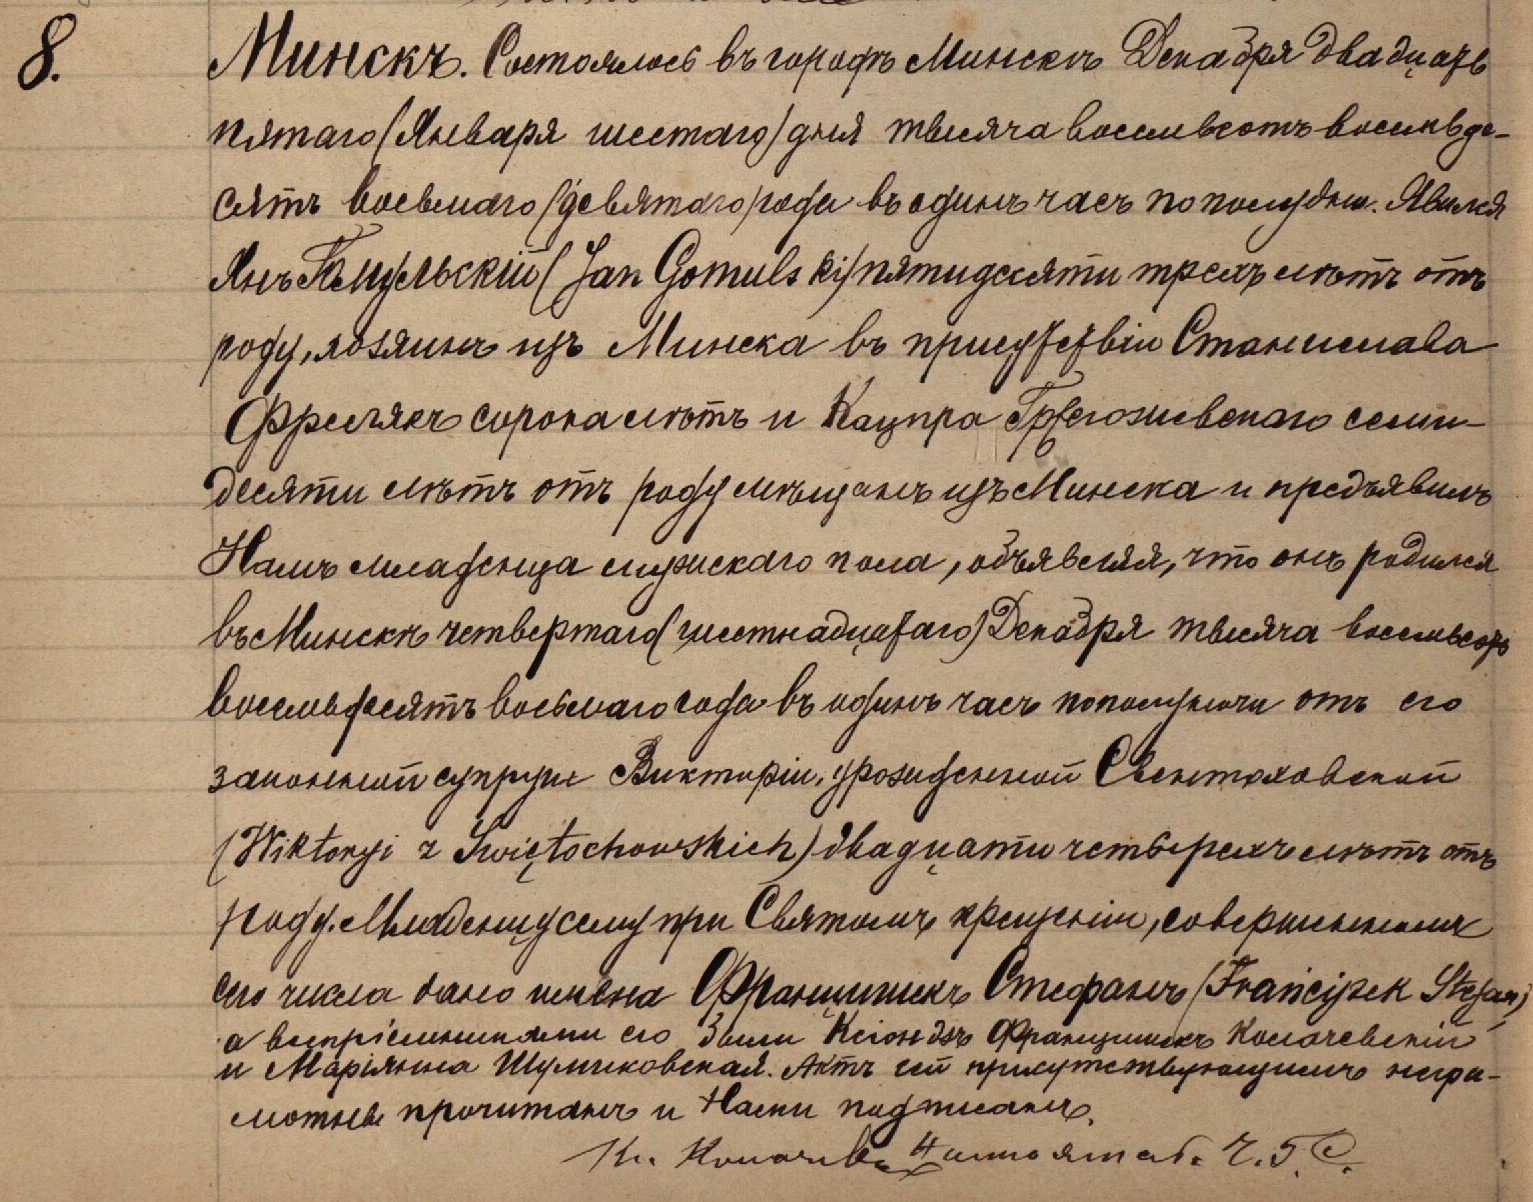 8. Минскъ. Состоялось въ городѣ Минскѣ Декабря двадцать
пятаго (Января шестаго) дня тысяча восемьсотъ восемьде-
сятъ восьмаго (девятаго) года въ одинъ часъ по полудни. Явился
Янъ Гомульскій (Jan Gomulski) пятидесяти трехъ лѣтъ отъ
роду, хозяинъ изъ Минска въ присутствіи Станислава
Френлякъ сорока лѣтъ и Кацпра Гржегоржевскаго семи-
десяти лѣтъ отъ роду мѣщанъ изъ Минска и предъявилъ
Намъ младенца мужскаго пола, объявляя, что онъ родился
въ Минскѣ четвертаго (шестнадцатаго) Декабря тысяча восемьсотъ
восемьдесятъ восьмаго года въ одинъ часъ пополуночи отъ его
законной супруги Викторіи, урожденной Свентоховской
(Wiktoryi z Swiętochowskich) двадцати четырехъ лѣтъ отъ
роду. Младенцу сему при Святомъ крещеніи, совершенномъ
сего числа дано имена Францишекъ Стефанъ (Franciszek Stefan)
а воспріемниками его были Ксіондзъ Францишекъ Колачевскій
и Маріянна Шумиковская. Актъ сей присутствующимъ негра-
мотнымъ прочитанъ и Нами подписанъ.
Кс. Ч. Б. С.